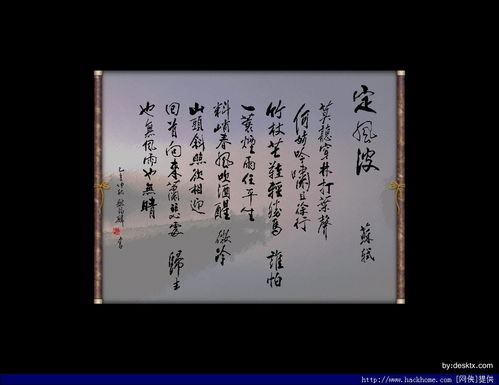 定風波
蘇軾
莫聽穿林打葉聲
何妨吟嘯且徐行
竹杖芒鞋輕勝馬 誰怕
一蓑煙雨任平生
料峭春風吹酒醒 微冷
山頭斜照卻相迎
回首向來蕭瑟處 歸去
也無風雨也無晴
by:desktx.com
http://www.hackhome.com [网侠]提供